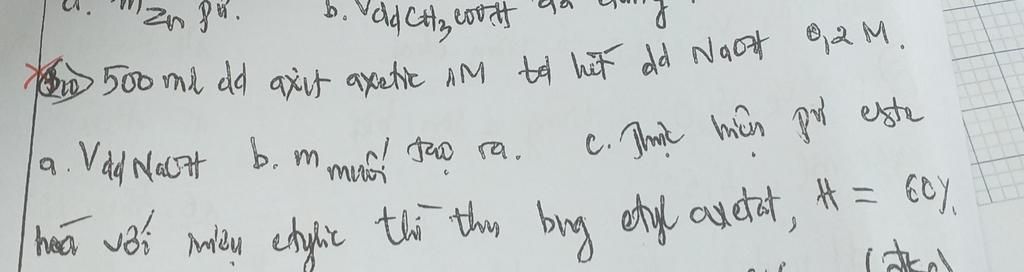 a. m Zn pứ. b. Vdd CH3COOH đã dùng
B10 500 ml dd axit axetic 1M td hết dd NaOH 0,2 M.
a. Vdd NaOH b. m muối tạo ra. c. Thực hiện pứ este
hoá với rượu etylic thì thu bng etyl axetat, H = 60%.
(đkc)